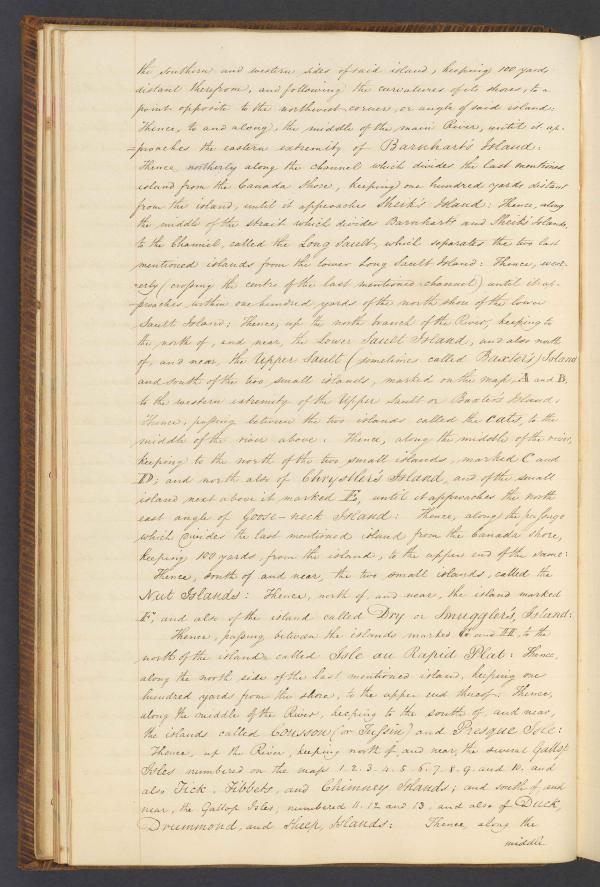 the southern and western sides of said island, keeping 100 yards
distant therefrom, and following the curvatures of its shores, to a
point opposite to the northwest corner, or angle of said island:
Thence, to and along, the middle of the main River, until it ap-
=proaches the eastern extremity of Barnhart's Island:
Thence northerly along the channel which divides the last mentioned
island from the Canada shore, keeping one hundred yards distant
from the island, until it approaches Sheik's Island: Thence, along
the middle of the strait which divides Barnhart's and Sheik's Islands,
to the Channel, called the Long Sault, which separates the two last
mentioned islands from the lower Long Sault Island: Thence, west-
erly (crossing the centre of the last mentioned channel) until it ap-
=proaches, within one hundred yards of the north shore of the lower
Sault Island: Thence, up the north branch of the River, keeping to
the north of, and near, the Lower Sault Island, and also north
of, and near, the Upper Sault (sometimes called Baxter's) Island
and south of the two small islands, marked on the map A and B.
to the western extremity of the Upper Sault or Baxter's Island:
Thence, passing between the two islands called the Cats, to the
middle of the river above: Thence, along the middle of the river,
keeping to the north of the two small islands, marked C and
D; and north also of Chrystler's Island, and of the small
island next above it marked E, until it approaches the north
east angle of Goose-neck Island: Thence, along the passage
which divides the last mentioned island from the Canada shore,
keeping 100 yards, from the island, to the upper end of the same:
Thence, south of and near, the two small islands, called the
Nut Islands: Thence, north of, and near, the island marked
F, and also of the island called Dry or Smuggler's, Island:
Thence, passing between the islands marked G and H, to the
north of the island called Isle au Rapid Plat: Thence,
along the north side of the last mentioned island, keeping one
hundred yards from the shore, to the upper end thereof: Thence,
along the middle of the River, keeping to the south of, and near,
the islands called Cousson (or Tussin) and Presque Isle:
Thence, up the River, keeping north of and near, the several Gallop
Isles numbered on the map 1. 2. 3. 4. 5. 6. 7. 8. 9. and 10. and
also Tick, Tibbets, and Chimney Islands; and south of, and
near, the Gallop Isles, numbered 11. 12. and 13, and also of Duck,
Drummond, and Sheep, Islands: Thence, along the
middle